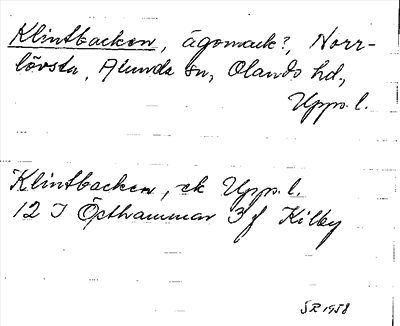 Klintbacken, ägomark?, Norr-
lövsta, Alunda sn, Olands hd,
Upps. l.
Klintbacken, ek Upps. l.
12 I Östhammar 3 f Kilby
SR 1958